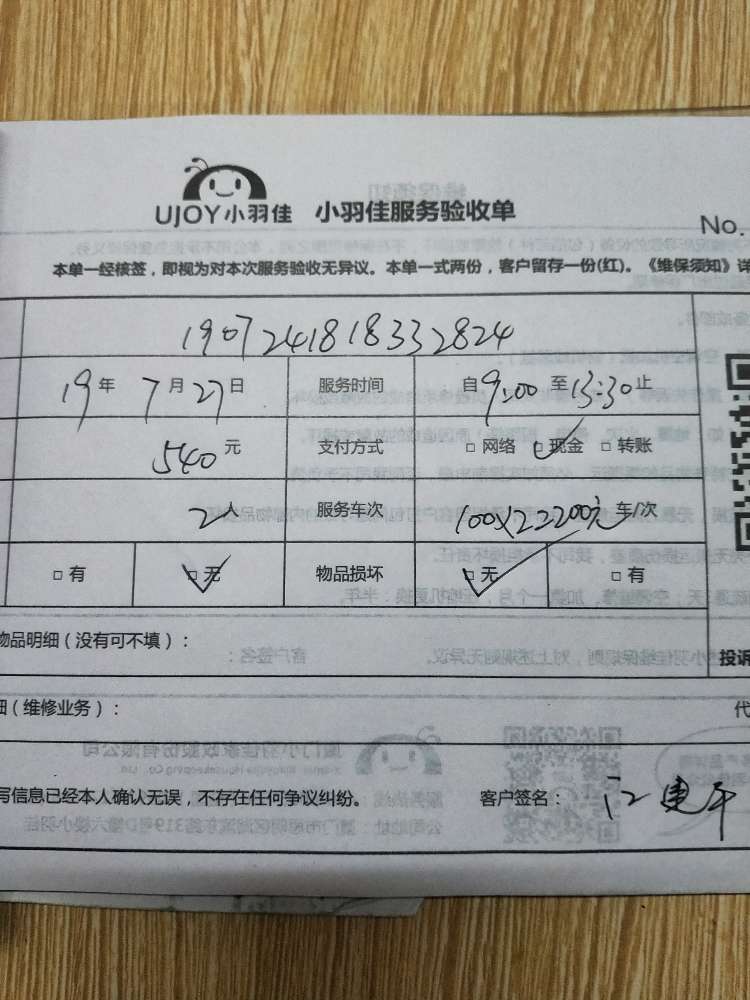 UJOY小羽佳 小羽佳服务验收单
No.
本单一经核签，即视为对本次服务验收无异议。本单一式两份，客户留存一份(红)。《维保须知》详
1907241818332824
19年 7月27日 服务时间 自9:00至13:30止
540元 支付方式 □网络 □现金 □转账
2人 服务车次 100X2 200元 车/次
□有 □无 物品损坏 □无 □有
物品明细（没有可不填）：
投诉
细（维修业务）：
代
写信息已经本人确认无误，不存在任何争议纠纷。 客户签名：